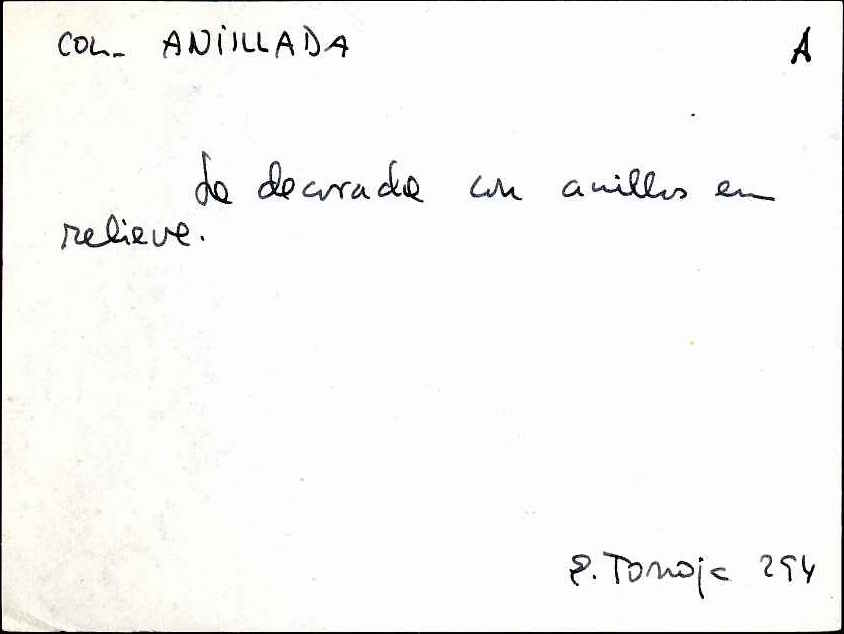 COL. ANILLADA A
La decorada con anillos en
relieve.
E. Torroja 254